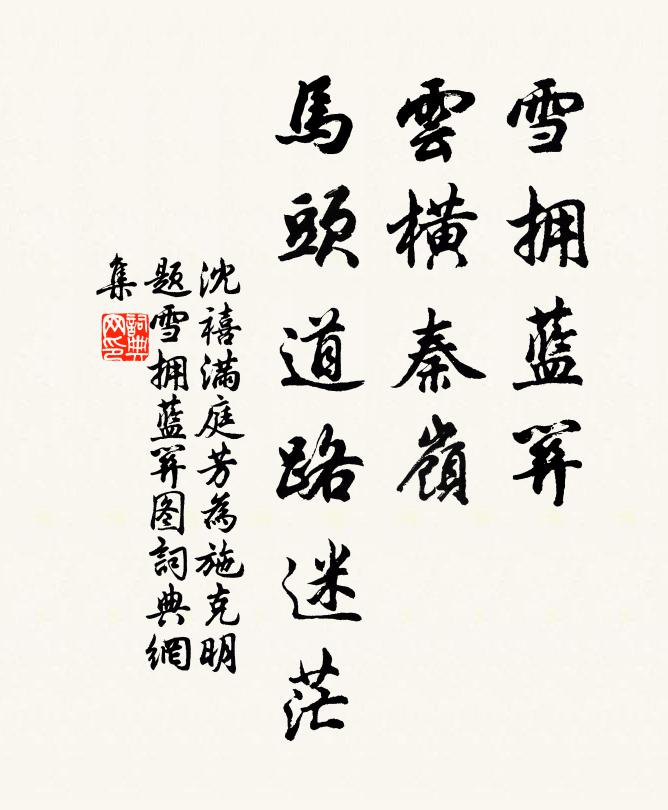 雪拥藍關
雲横秦嶺
馬頭道路迷茫
沈禧滿庭芳為施克明
题雪拥藍關图詞典網
集
詞典
网印